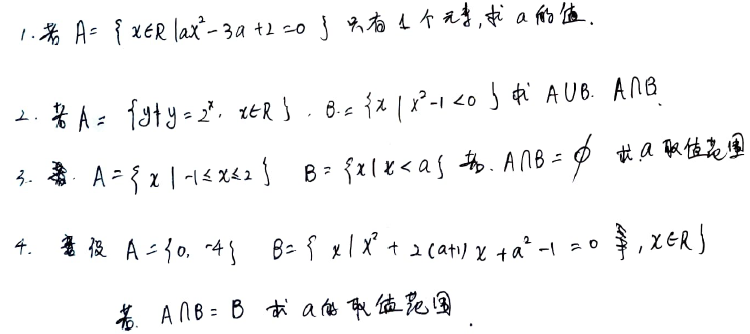 1. 若 A={x∈R|ax²-3a+2=0} 只有1个元素,求a的值.
2. 若A={y|y=2ˣ, x∈R}. B={x|x²-1<0} 求 A∪B. A∩B.
3. A={x|-1≤x≤2} B={x|x<a} 若. A∩B=∅ 求a取值范围
4. 设 A={0, -4} B={x|x²+2(a+1)x+a²-1=0, x∈R}
若. A∩B=B 求a的取值范围.